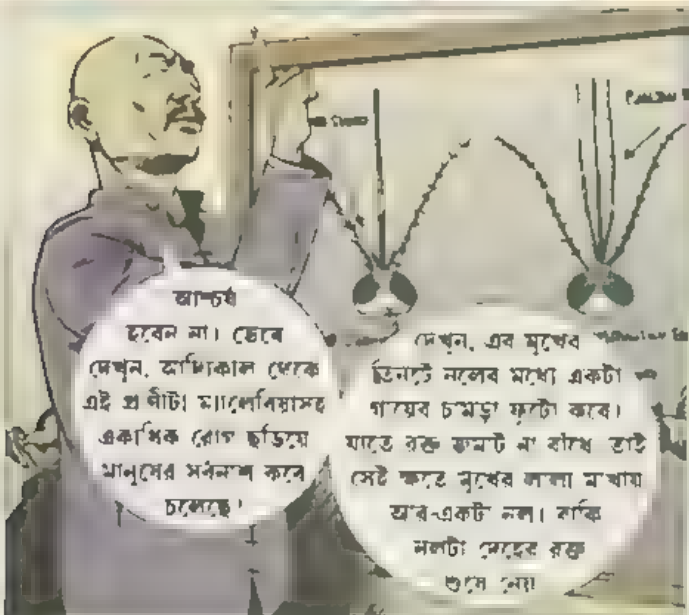 আশ্চর্য
হবেন না। ভেবে
দেখুন, আদিকাল থেকে
এই প্রাণীটা ম্যালেরিয়াসহ
একাধিক রোগ ছড়িয়ে
মানুষের সর্বনাশ করে
চলেছে!
দেখুন, এর মুখের
তিনটে নলের মধ্যে একটা
গায়ের চামড়া ফুটো করে।
যাতে রক্ত জমাট না বাঁধে তাই
সেই ক্ষতে মুখের লালা মাখায়
আর-একটা নল। বাকি
নলটা দেহের রক্ত
শুষে নেয়